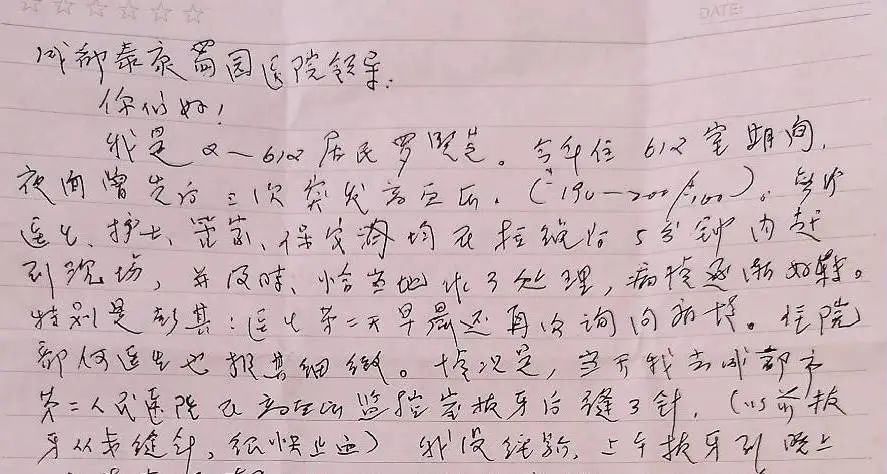 DATE:
成都泰康蜀园医院领导:
你们好!
我是2-612居民罗贤芝。今年住612室期间,
夜间曾先后三次突发高血压,(190-200/100)。每次
医生、护士、管家、保安均在拉绳后5分钟内赶
到现场,并及时、恰当地作了处理,病情逐渐好转。
特别是彭其医生第二天早晨还再次询问病情。住院
部何医生也极其细致。情况是,当天我去成都市
第二人民医院在高血压监控室拔牙后缝了针,(以前拔
牙从未缝针,很快止血)我没经验,上午拔牙到晚上